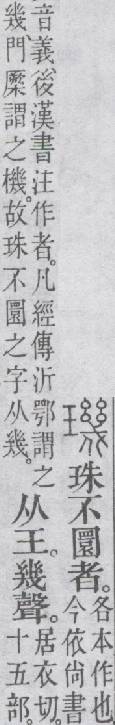 璣
珠不圜者。
各本作也
今依尚書
音義、後漢書注作者。凡經傳沂鄂謂之
幾、門橜謂之機。故珠不圜之字从幾。
从王。幾聲。
居衣切。
十五部。